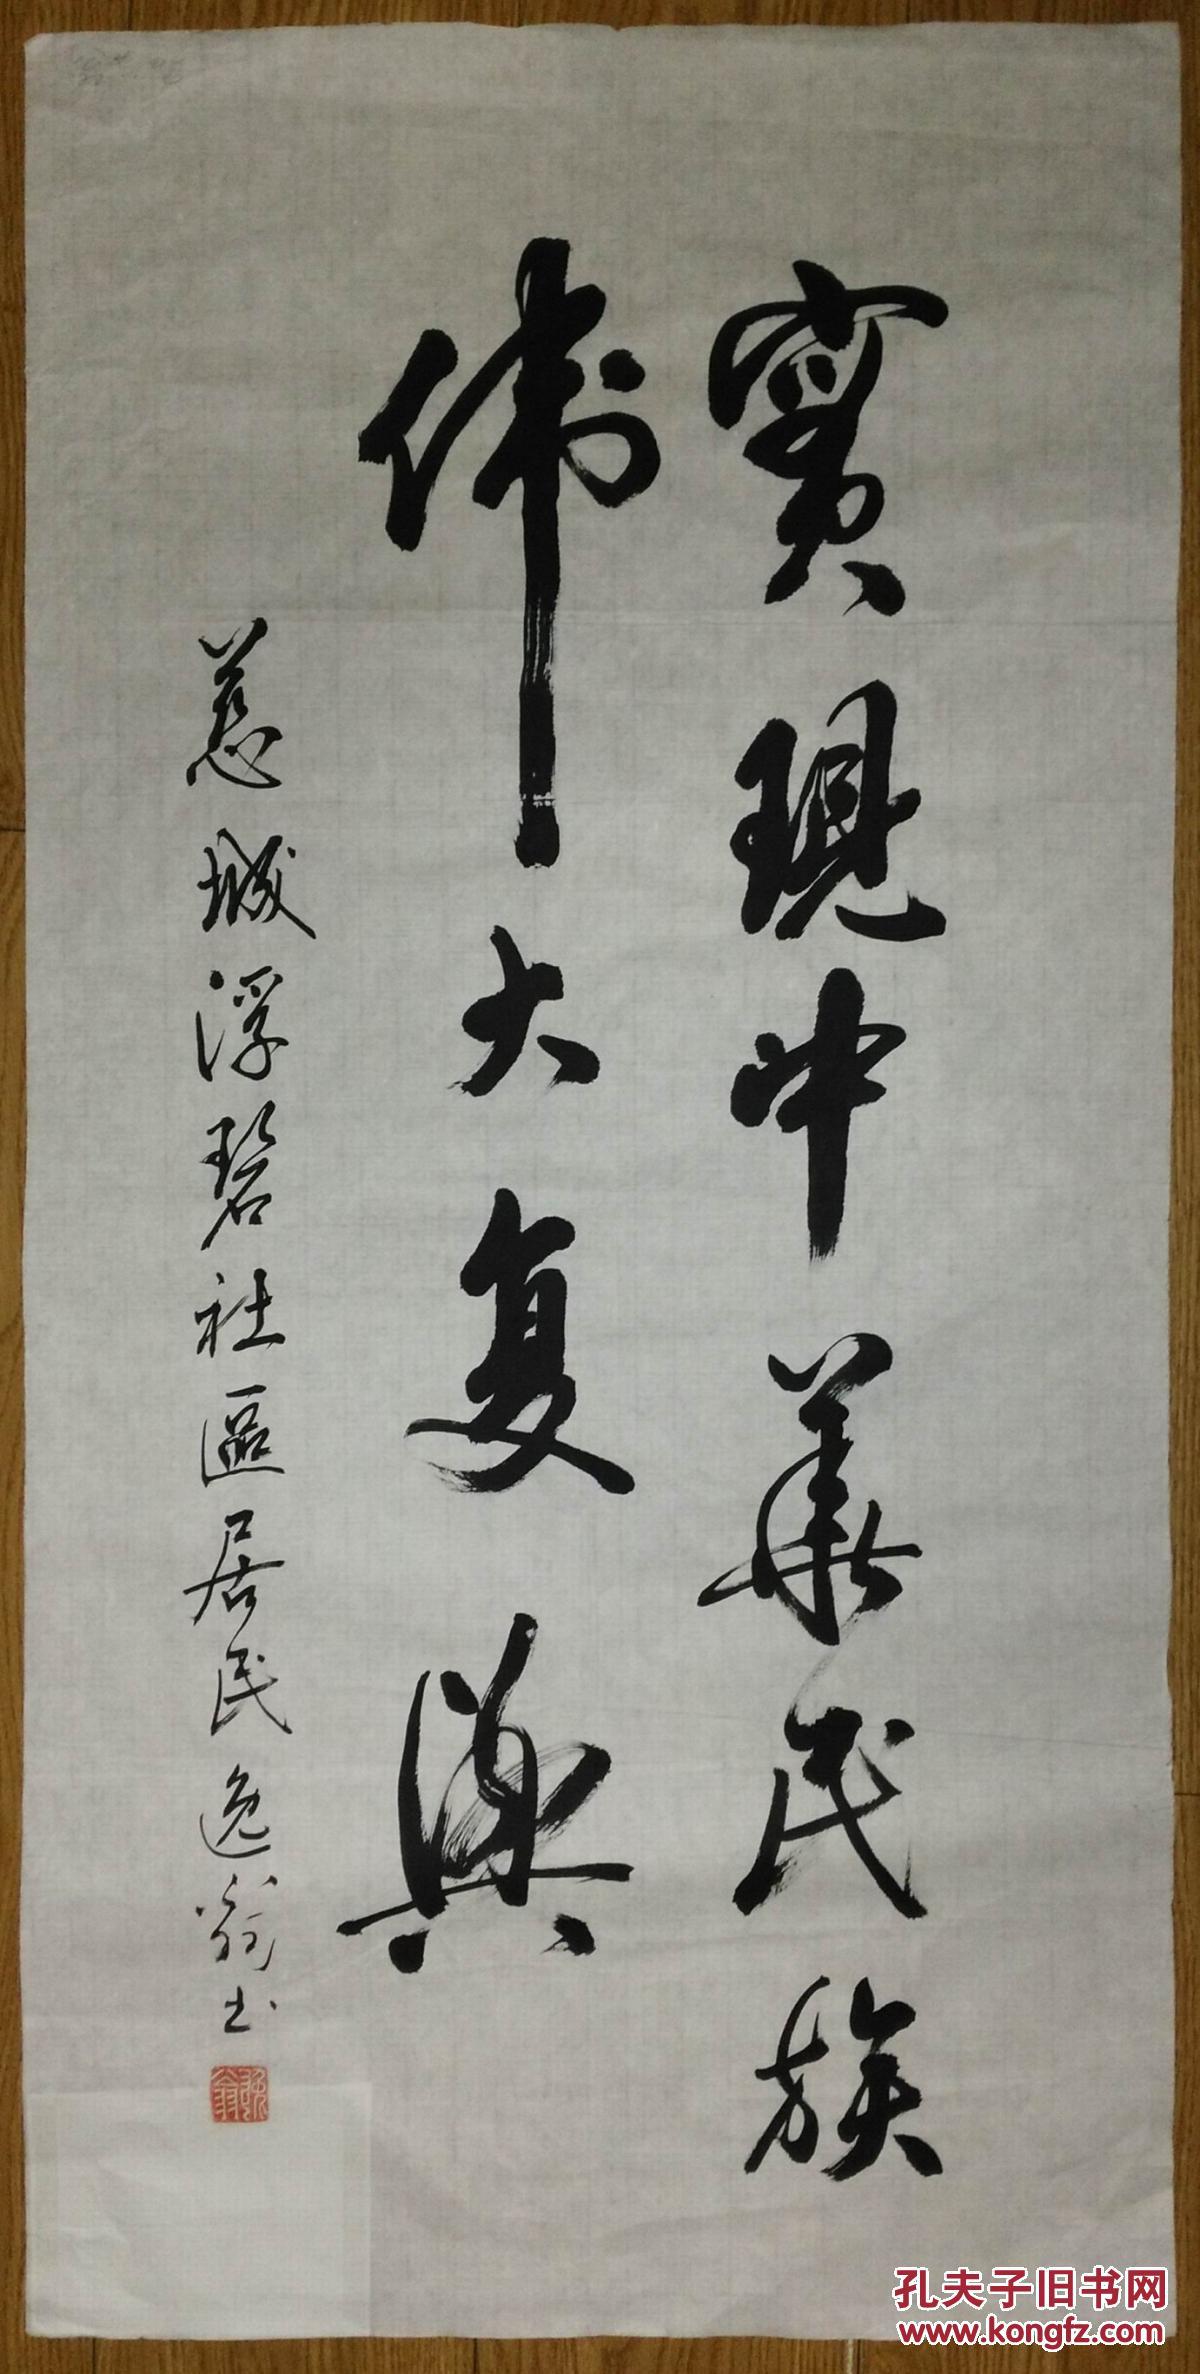 實現中華民族
伟大复興
慈城浮碧社區居民逸翁书
孔夫子旧书网
www.kongfz.com